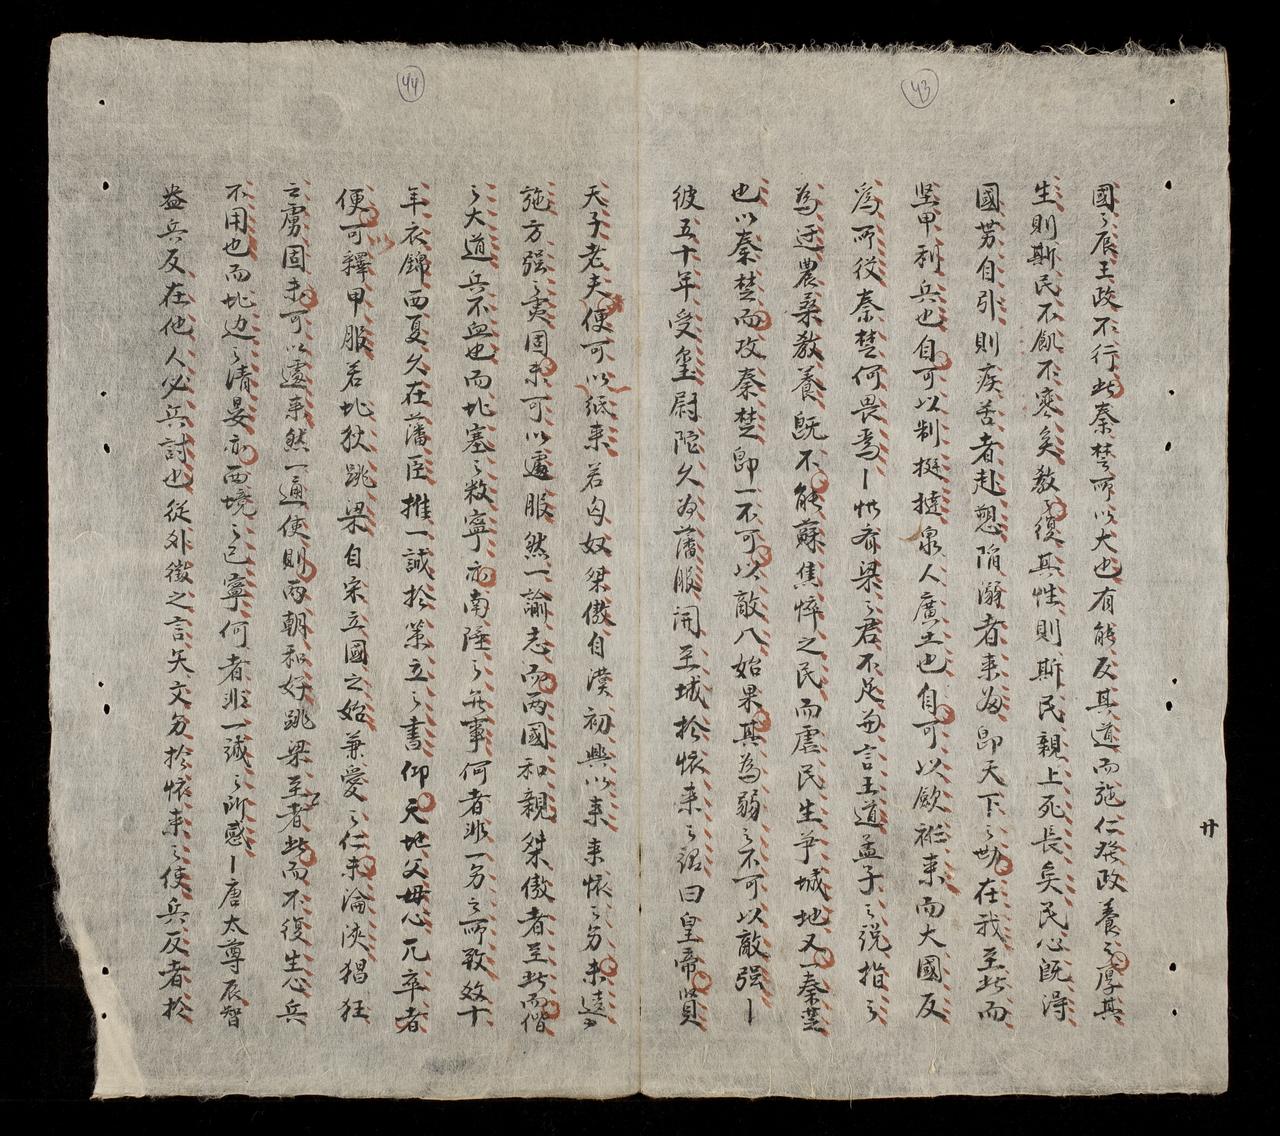 43
國々辰王政不行此秦楚所以大也有能反其道而施仁發政養之厚其
生則斯民不飢不寒矣教復其性則斯民親上死長矣民心既得
國勢自引則疾苦者赴愬陷溺者来為卽天下之勢在我至此而
坚甲利兵也自可以制挺撻眾人廣土也自可以斂袵来而大國反
為所役秦楚何畏焉丨惜齊梁之君不足與言王道孟子之說指之
為迂農桑教養既不能蘇焦悴之民而虐民生爭城地又一秦楚
也以秦楚而攻秦楚卽一不可以敵八始果其為弱之不可以敵强丨
彼五十年受璽尉陀久為藩服閉至城於懷来之詔曰皇帝賢
廿
44
天子老夫便可以紙来若匈奴桀傲自漢初興以来来懷之分未達
施方强之夷固未可以遽服然一諭志而两國和親桀傲者至此而偕
之大道兵不血也而北塞之敉寧亦南陲之無事何者非一分之所致效十
年衣錦西夏久在藩臣推一誠於策立之書仰天地父母心兀卒者
便可釋甲服若北狄跳梁自宋立國之始兼愛之仁未淪浹猖狂
之虜固未可以遽来然一通使則两朝和好跳梁至者此而不復生心兵
不用也而北边之清晏亦西境之已寧何者非一誠之所感丨唐太尊辰智
盎兵反在他人必兵討也從外徵之言矢文分於懷来之使兵反者於